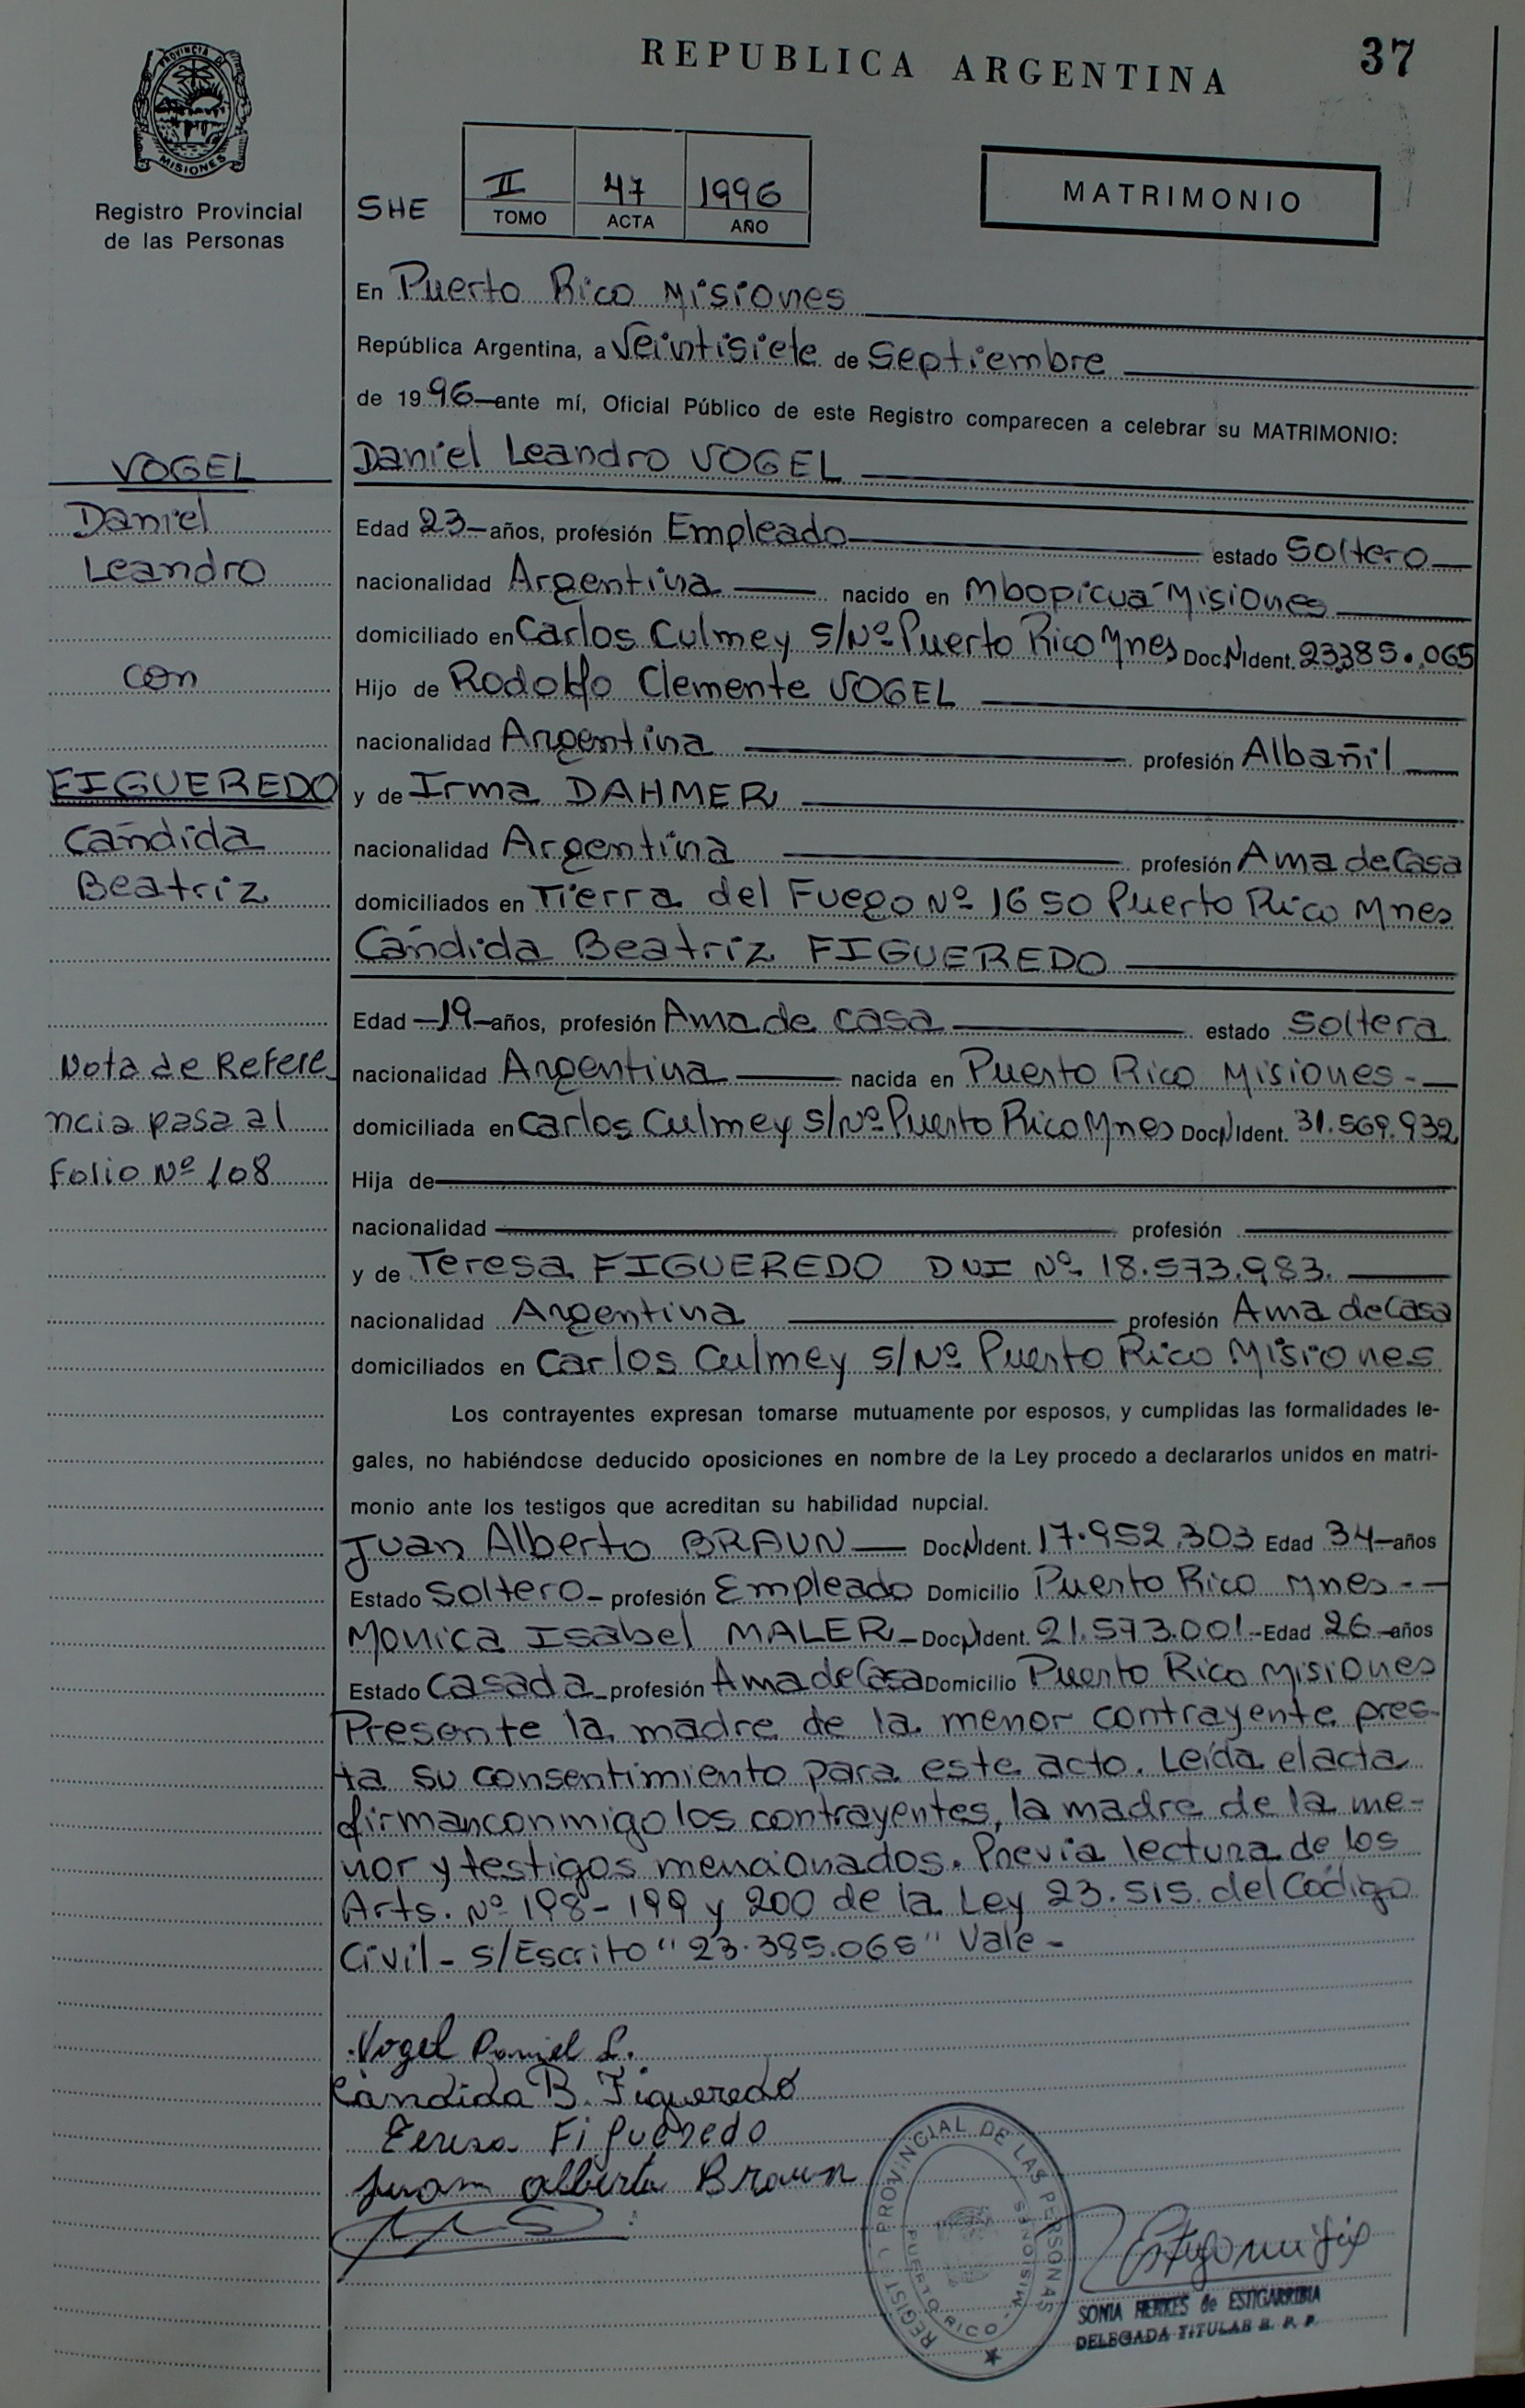 REPUBLICA ARGENTINA
37
PROVINCIA DE
MISIONES
Registro Provincial
de las Personas
SHE
II 47 1996
TOMO ACTA AÑO
MATRIMONIO
En Puerto Rico Misiones
República Argentina, a Veintisiete de Septiembre
de 1996 ante mí, Oficial Público de este Registro comparecen a celebrar su MATRIMONIO:
VOGEL
Daniel
Leandro
con
FIGUEREDO
Cándida
Beatriz
Nota de Refere
ncia pasa al
Folio Nº 108
Daniel Leandro VOGEL
Edad 23 años, profesión Empleado estado Soltero
nacionalidad Argentina nacido en Mbopicuá Misiones
domiciliado en Carlos Culmey S/Nº Puerto Rico Mnes Doc.N.Ident. 23.385.065
Hijo de Rodolfo Clemente VOGEL
nacionalidad Argentina profesión Albañil
y de Irma DAHMER
nacionalidad Argentina profesión Ama de Casa
domiciliados en Tierra del Fuego Nº 1650 Puerto Rico Mnes
Cándida Beatriz FIGUEREDO
Edad 19 años, profesión Ama de casa estado Soltera
nacionalidad Argentina nacida en Puerto Rico Misiones.-
domiciliada en Carlos Culmey S/Nº Puerto Rico Mnes Doc.N.Ident. 31.569.932
Hija de
nacionalidad profesión
y de Teresa FIGUEREDO DNI Nº 18.573.983.
nacionalidad Argentina profesión Ama de Casa
domiciliados en Carlos Culmey S/Nº Puerto Rico Misiones
Los contrayentes expresan tomarse mutuamente por esposos, y cumplidas las formalidades le-
gales, no habiéndose deducido oposiciones en nombre de la Ley procedo a declararlos unidos en matri-
monio ante los testigos que acreditan su habilidad nupcial.
Juan Alberto BRAUN Doc.N.Ident. 17.952.303 Edad 34 años
Estado Soltero profesión Empleado Domicilio Puerto Rico Mnes.-
Monica Isabel MALER Doc.N.Ident. 21.573.001.- Edad 26 años
Estado Casada profesión Ama de Casa Domicilio Puerto Rico Misiones
Presente la madre de la menor contrayente pres-
ta su consentimiento para este acto. Leída el acta
firman conmigo los contrayentes, la madre de la me-
nor y testigos mencionados. Previa lectura de los
Arts. Nº 198 - 199 y 200 de la Ley 23.515. del Código
Civil - S/Escrito "23.385.065" Vale -
Vogel Daniel L.
Cándida B. Figueredo
Teresa Figueredo
Juan Alberto Braun
REGISTRO PROVINCIAL DE LAS PERSONAS
PUERTO RICO - MISIONES
SONIA de ESTIGARRIBIA
DELEGADA TITULAR R. P. P.